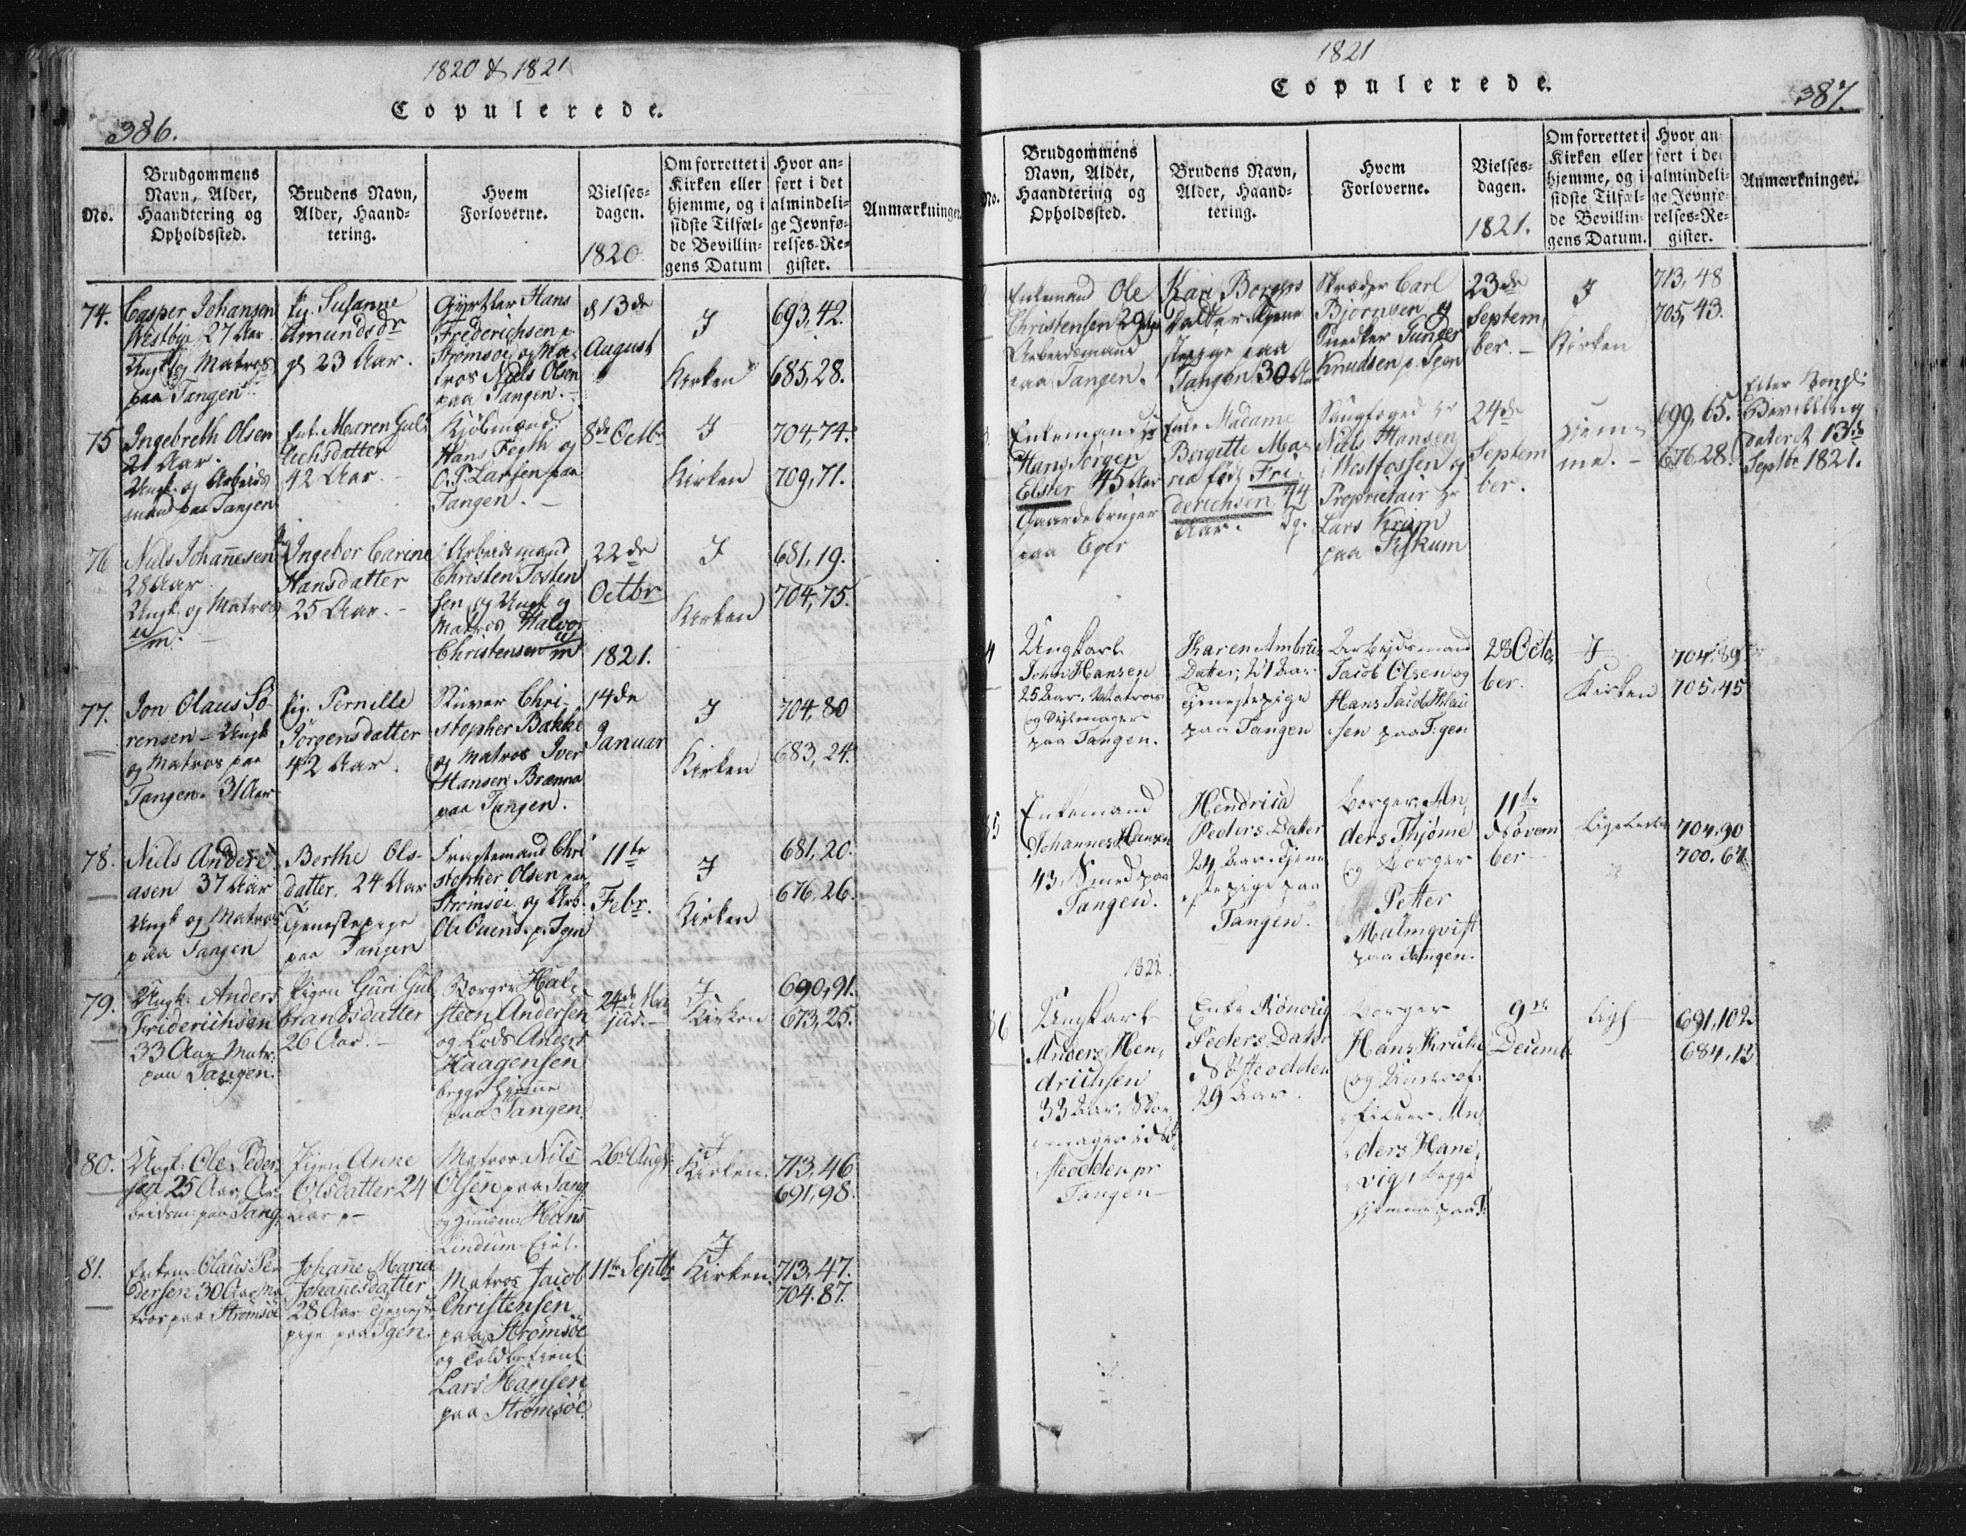 1820 & 1821
Copulerede.
386.
No.
Brudgommens
Navn, Alder,
Haandtering og
Opholdssted.
Brudens Navn,
Alder, Haand-
tering.
Hvem
Forloverne.
Vielses-
dagen.
1820
Om forrettet i
Kirken eller
hjemme, og i
sidste Tilfæl-
de Bevillin-
gens Datum
Hvor an-
ført i det
almindeli-
ge Jevnfø-
relses-Re-
gister.
Anmærkninger.
74.
Casper Johansen
Westbye, 27 Aar
Ungk. og Matros
paa Tangen.
Pig. Susanne
Amundsdr
23 Aar.
Gjørtler Hans
Frederichsen p
Strømsøe og Ma-
tros Niels Olsen
paa Tangen.
d 13de
August
I
Kirken
693,42.
685,28.
75
Ingebreth Olsen
21 Aar.
Ungk. og Arbeids
mand paa Tangen
Enk. Maren Gul-
lichsdatter
42 Aar.
Kjøbmænd
Hans Fegth og
O. P. Larsen paa
Tangen.
8de Octbr
I
Kirken
704,74.
709,71.
76
Niels Johannesen
28 Aar
Ungk. og Matros
Ingebor Carine
Hansdatter
25 Aar.
Arbeidsmand
Christen Tosten
sen og Ungk. og
Matros Halvor
Christensen
22de
Octbr
1821.
I
Kirken
681,19.
704,75.
77.
Jon Olaus Sø-
rensen - Ungk
og Matros paa
Tangen. 31 Aar
Pig. Pernille
Jørgensdatter
42 Aar.
Stuver Chri-
stopher Bakke
og Matros Iver
Hansen Brænna
paa Tangen.
14de
Januar
I
Kirken
704,80
683,24.
78.
Niels Andere-
asen 37 Aar
Ungk og Matros
paa Tangen
Berthe Ols-
datter. 24 Aar
Tjenestepige
paa Tangen
Fragtemand Chri
stopher Olsen paa
Strømsøe. og Arb.
Ole Evens. p. Tgen
11te
Febr.
I
Kirken
681,20.
676,26.
79.
Ungk. Anders
Friderichsen
33 Aar Matr.
paa Tangen.
Pigen Guri Gul
brandsdatter
26 Aar.
Borger Hal-
steen Andersen
og Lods Anders
Haagensen
begge hjemme
paa Tangen
24de
I
Kirken
690,91.
673,25.
80.
Ungk. Ole Peder
sen 25 Aar, Ar-
beidsm: paa Tang.
Pigen Anne
Olsdatter 24
Aar
Matros Nils
Olsen paa Tang
og Huusm: Hans
Lindum
26de Augs
I
Kirken.
713,46
691,98.
81.
Enkem: Olaus Pe-
dersen 30 Aar Ma
tros paa Strømsøe
Johanne Maria
Johannesdatter
28 Aar Tjeneste
pige paa Tgen.
Matros Jacob
Christensen
paa Strømsøe
og Toldbetjent
Lars Hansen
paa Strømsøe.
11te Septbr
I
Kirken.
713,47.
704,87.
1821
Copulerede.
387.
No.
Brudgommens
Navn, Alder,
Haandtering og
Opholdssted.
Brudens Navn,
Alder, Haand-
tering.
Hvem
Forloverne.
Vielses-
dagen.
1821.
Om forrettet i
Kirken eller
hjemme, og i
sidste Tilfæl-
de Bevillin-
gens Datum.
Hvor an-
ført i det
almindeli-
ge Jevnfø-
relses-Re-
gister.
Anmærkninger.
Enkemand Ole
Christensen 29
Arbeidsmand
paa Tangen.
Kari Borgers
Datter Tjene
stepige paa
Tangen 30 Aar
Skræder Carl
Bjørnsen og
Snecker Gunder
Knudsen p. Tgen
23de
Septem
ber.
I
Kirken
713,48
705,43.
Enkemand
Hans Jørgen
Elster 45 Aar
Gaardebruger
paa Eger
Enke Madame
Bergitte Ma-
ria født Fri-
derichsen 44
Aar.
Saugfoged Hr
Niels Hansen
Westfossen og
Proprietair Hr
Lars Kram
paa Fiskum
24de
Septem
ber.
Hjem-
me.
699,65.
676,28.
Efter Kongl:
Bevilling
dateret 13de
Septbr 1821.
4
Ungkarl
John Hansen
25 Aar, Matros
og Seylmager
paa Tangen.
Karen Ambrie
Datter, 21 Aar
Tjenestepige
paa Tangen
Arbejdsmand
Jacob Olsen og
Hans Jacob
sen paa T:gen
28 Octo,
ber.
I
Kirken
704,89
705,45
85
Enkemand
Johannes Hansen
43, Smed paa
Tangen.
Hendrica
Peders Dater
24 Aar, Tjene
stepige paa
Tangen.
Borger An,
ders Thjøme
og Borger
Petter
Malmqvist
paa Tangen.
11te
Novem
ber
ligeledes
704.90
700.67
1821.
86
Ungkarl
Anders Hen,
drichsen
33 Aar, Skoe-
mager
paa
Tangen
Enke Rønnoug
Peders Dater
29 Aar.
Borger
Hans Kruke
og Underof-
ficeer An,
ders Hane-
vig, begge
hjemme paa T:
9de
Decemb.
ligl
691,102
684.13